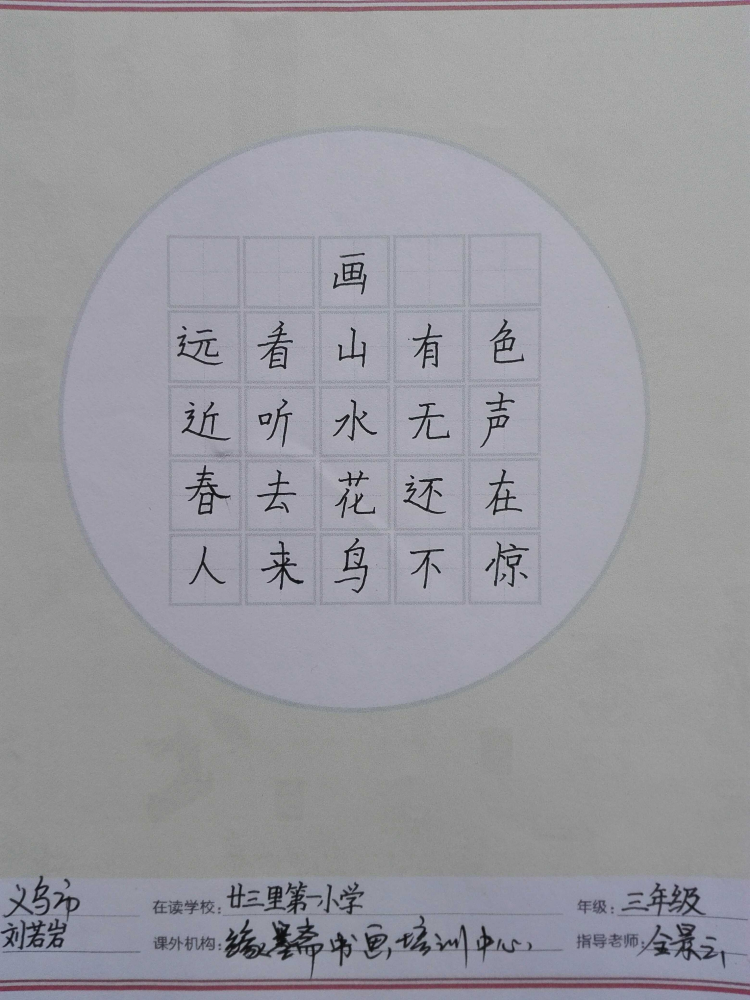 画
远看山有色
近听水无声
春去花还在
人来鸟不惊
义乌市 在读学校: 廿三里第一小学 年级: 三年级
刘若岩 课外机构: 缘墨斋书画培训中心 指导老师: 金景云